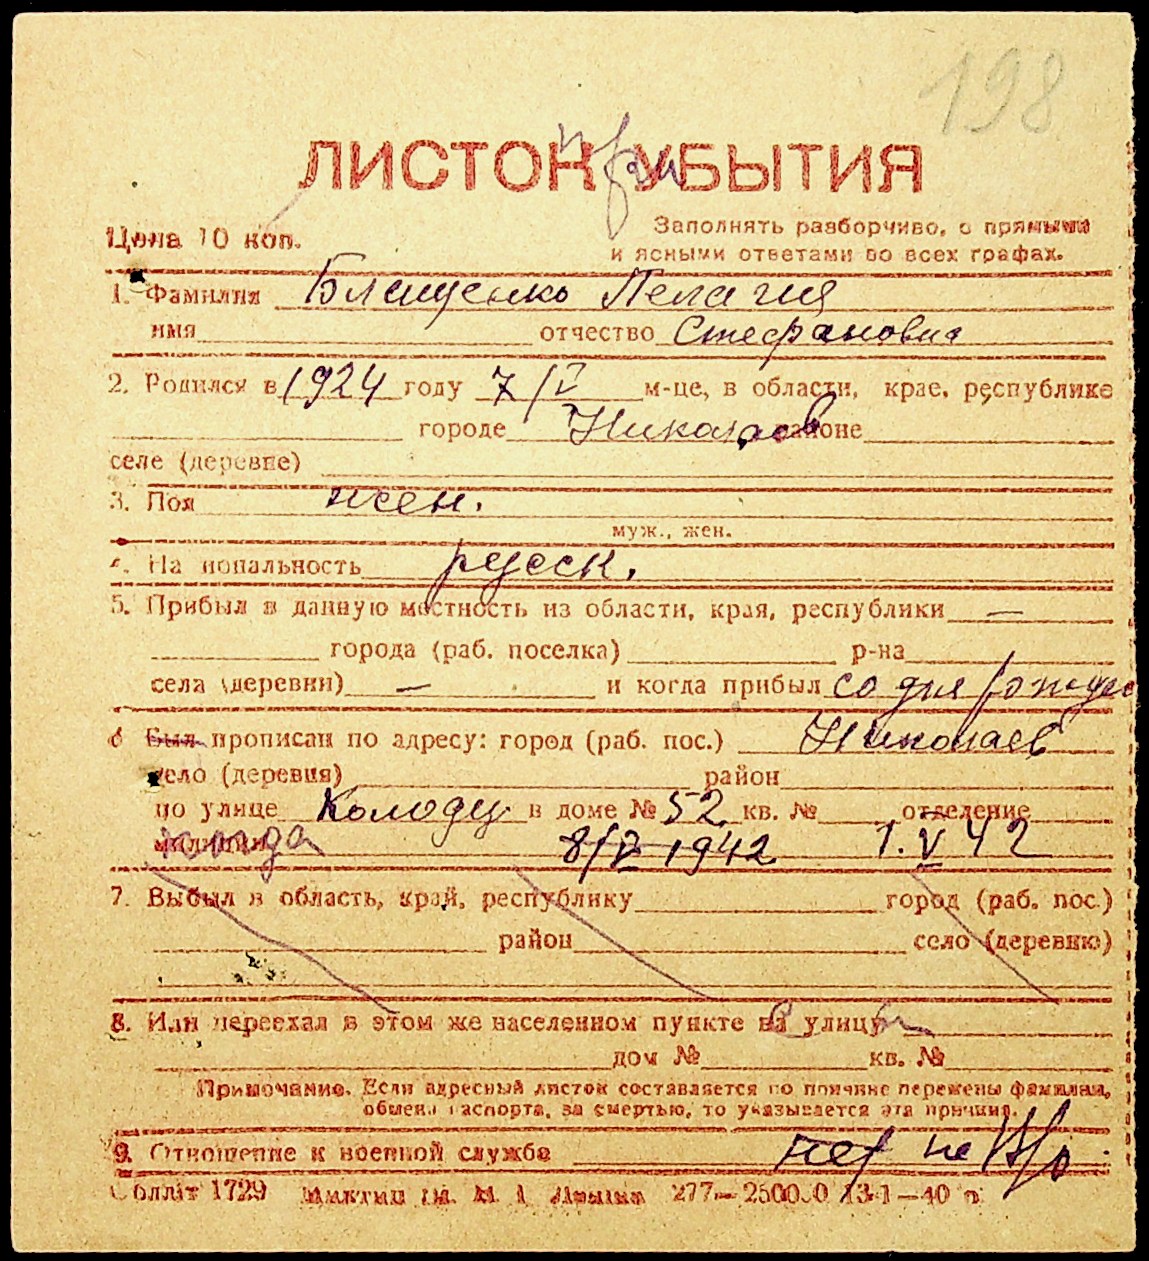 198
ЛИСТОК УБЫТИЯ
при
Цена 10 коп.
Заполнять разборчиво, с прямыми
и ясными ответами во всех графах.
1. Фамилия Блищенко Пелагия
имя отчество Стефановна
2. Родился в 1924 году 7/V м-це, в области, крае, республике
городе Николаев районе
селе (деревне)
3. Пол жен.
муж., жен.
4. Национальность русск.
5. Прибыл в данную местность из области, края, республики —
города (раб. поселка) р-на
села (деревни) — и когда прибыл со дня рожден
6 Был прописан по адресу: город (раб. пос.) Николаев
село (деревня) район
по улице Колодез в доме № 52 кв. № отделение
милиции когда 8/V 1942 1.V 42
7. Выбыл в область, край, республику город (раб. пос.)
район село (деревню)
8. Или переехал в этом же населенном пункте на улицу
дом № кв. №
Примечание. Если адресный листок составляется по причине перемены фамилии,
обмена паспорта, за смертью, то указывается эта причина.
9. Отношение к военной службе нет не
Обллит 1729 277—250000 13-1—40 г.